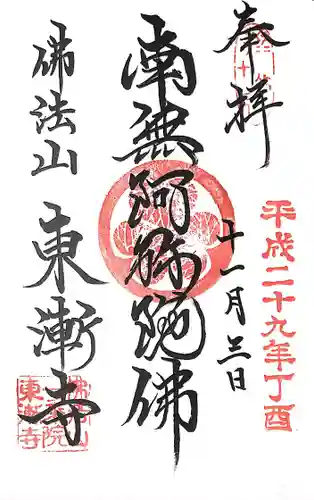 奉拝
平成二十九年丁酉
十一月三日
南無阿弥陀佛
佛法山
東漸寺
東漸寺